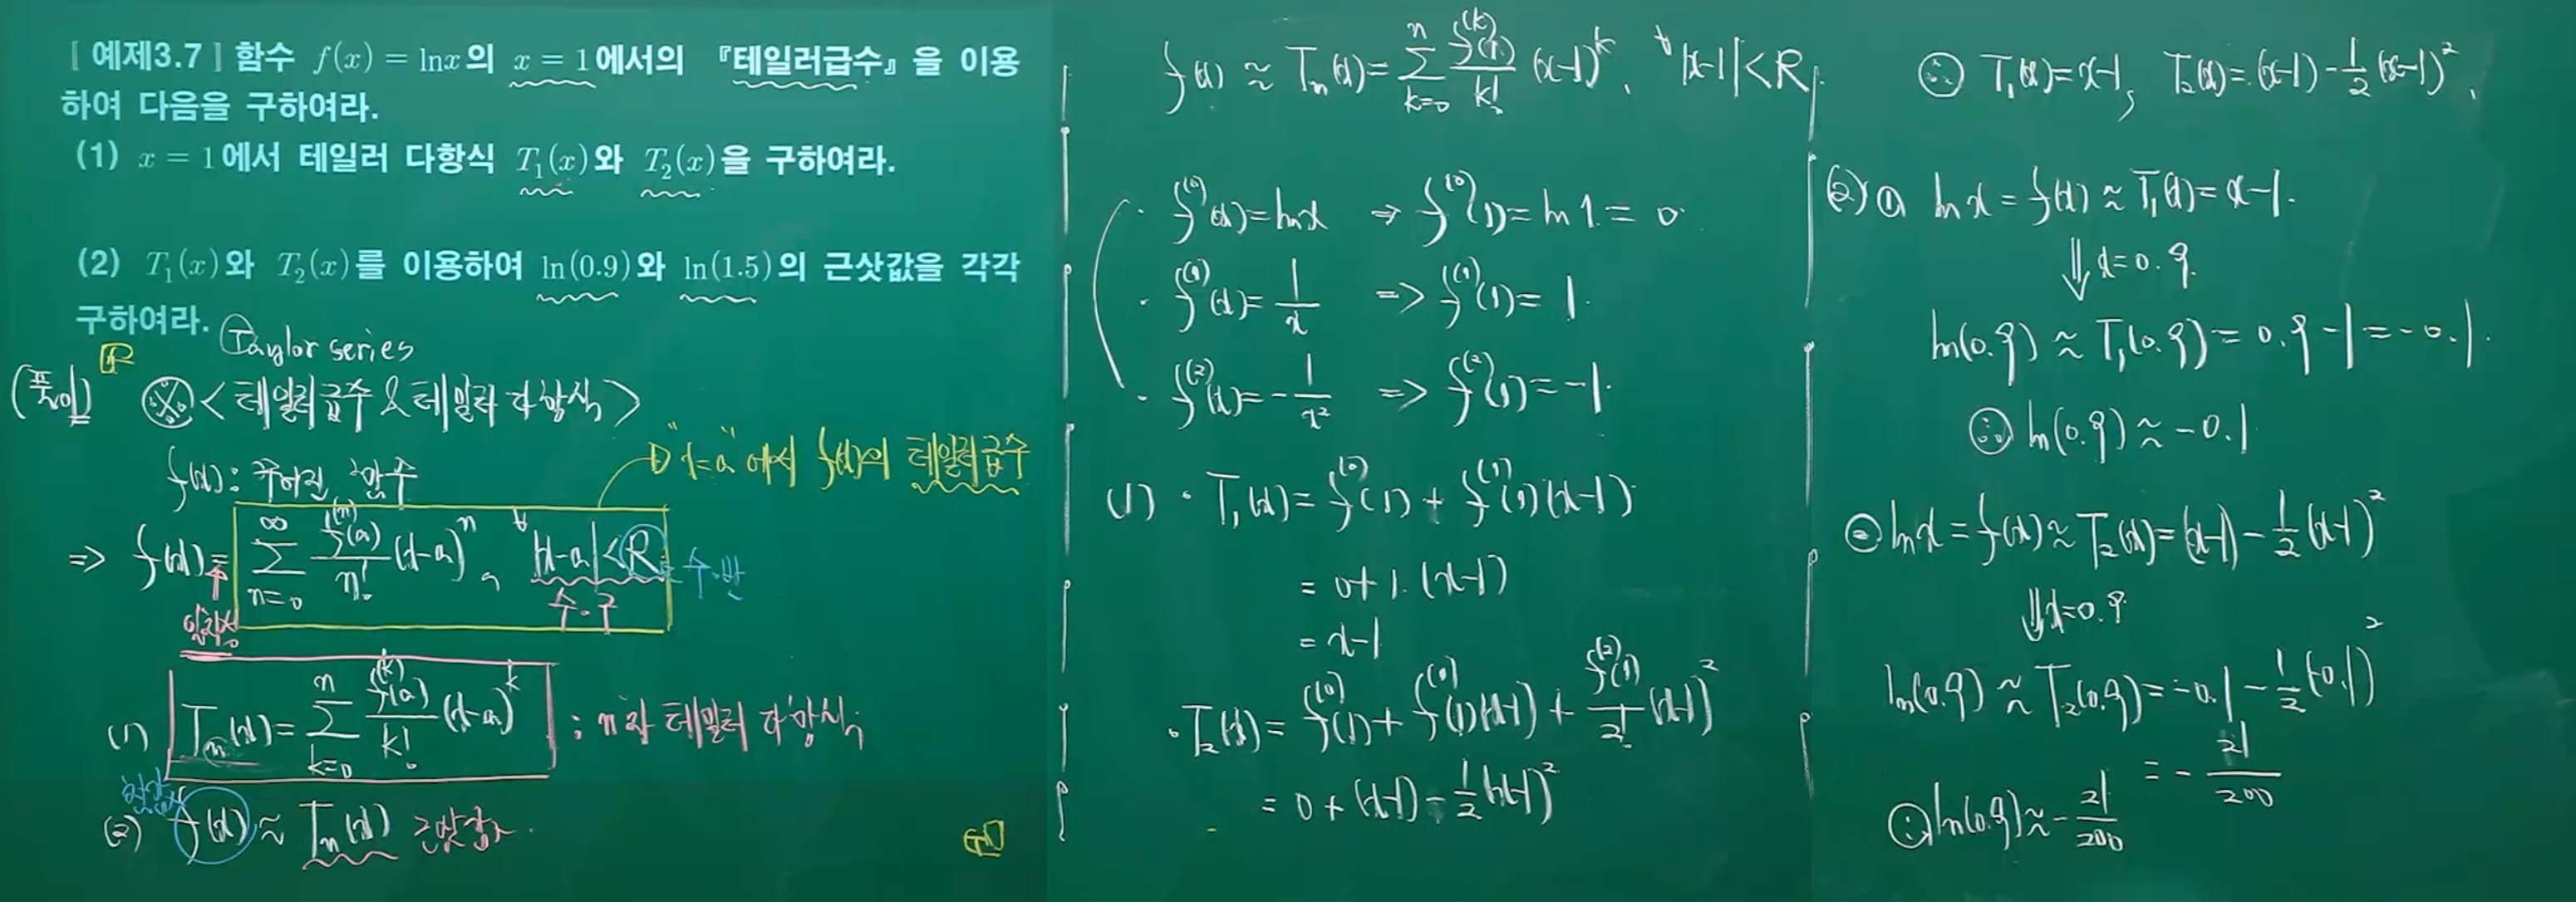 [ 예제3.7 ] 함수 f(x) = lnx의 x = 1에서의 『테일러급수』을 이용
하여 다음을 구하여라.
(1) x = 1에서 테일러 다항식 T₁(x)와 T₂(x)을 구하여라.
(2) T₁(x)와 T₂(x)를 이용하여 ln(0.9)와 ln(1.5)의 근삿값을 각각
구하여라.
Taylor series
(풀이) <테일러급수 & 테일러 다항식>
f(x) : 주어진 함수
"x=a"에서 f(x)의 테일러급수
=> f(x) = ∑_{n=0}^{∞} f^{(n)}(a)/n! (x-a)^n, ∀|x-a|<R
수.반
수.구
(1) T_n(x) = ∑_{k=0}^{n} f^{(k)}(a)/k! (x-a)^k : n차 테일러 다항식
(2) f(x) ≈ T_n(x) 근삿값
f(x) ≈ T_n(x) = ∑_{k=0}^{n} f^{(k)}(1)/k! (x-1)^k, ∀|x-1|<R
· f^{(0)}(x) = lnx => f^{(0)}(1) = ln1 = 0
· f^{(1)}(x) = 1/x => f^{(1)}(1) = 1.
· f^{(2)}(x) = -1/x² => f^{(2)}(1) = -1.
(1) · T₁(x) = f^{(0)}(1) + f^{(1)}(1)(x-1)
= 0+1.(x-1)
= x-1
· T₂(x) = f^{(0)}(1) + f^{(1)}(1)(x-1) + f^{(2)}(1)/2! (x-1)²
= 0 + (x-1) - 1/2 (x-1)²
∴ T₁(x) = x-1, T₂(x) = (x-1) - 1/2 (x-1)²,
(2) ① lnx = f(x) ≈ T₁(x) = x-1.
⇓ x=0.9
ln(0.9) ≈ T₁(0.9) = 0.9-1 = -0.1.
∴ ln(0.9) ≈ -0.1
② lnx = f(x) ≈ T₂(x) = (x-1) - 1/2 (x-1)²
⇓ x=0.9
ln(0.9) ≈ T₂(0.9) = -0.1 - 1/2 (-0.1)²
= - 21/200
∴ ln(0.9) ≈ - 21/200